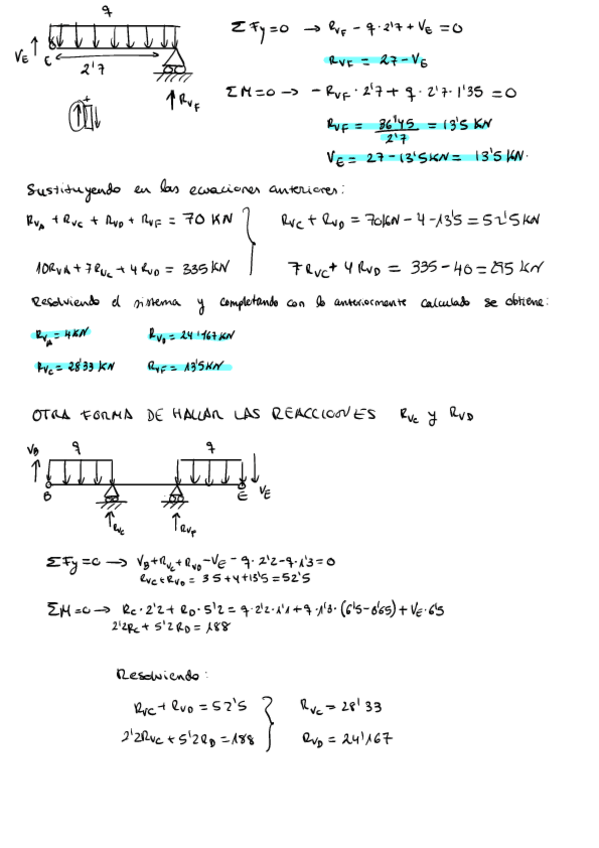 q
ΣFy=0 → RVF - q·2'7 + VE = 0
VE
E
2'7
RVF
RVE = 27 - VE
ΣM=0 → -RVF · 2'7 + q · 2'7 · 1'35 = 0
+
RVF = 36'45 / 2'7 = 13'5 KN
VE = 27 - 13'5 KN = 13'5 KN.
Sustituyendo en las ecuaciones anteriores:
RVA + RVC + RVD + RVF = 70 KN } RVC + RVD = 70KN - 4 - 13'5 = 52'5 KN
10RVA + 7RVC + 4RVD = 335 KN } 7RVC + 4RVD = 335 - 40 = 295 KN
Resolviendo el sistema y completando con lo anteriormente calculado se obtiene:
RVA = 4KN RVD = 24'167KN
RVC = 28'33 KN RVF = 13'5KN
OTRA FORMA DE HALLAR LAS REACCIONES RVC y RVD
VB q q
B E VE
RVC RVF
ΣFy=0 → VB + RVC + RVD - VE - q·2'2 - q·1'3 = 0
RVC + RVD = 35+4+13'5 = 52'5
ΣM=0 → RC·2'2 + RD·5'2 = q·2'2·1'1 + q·1'3·(6'5-0'65) + VE·6'5
2'2RC + 5'2RD = 188
Resolviendo:
RVC + RVD = 52'5 } RVC = 28'33
2'2RVC + 5'2RD = 188 } RVD = 24'167